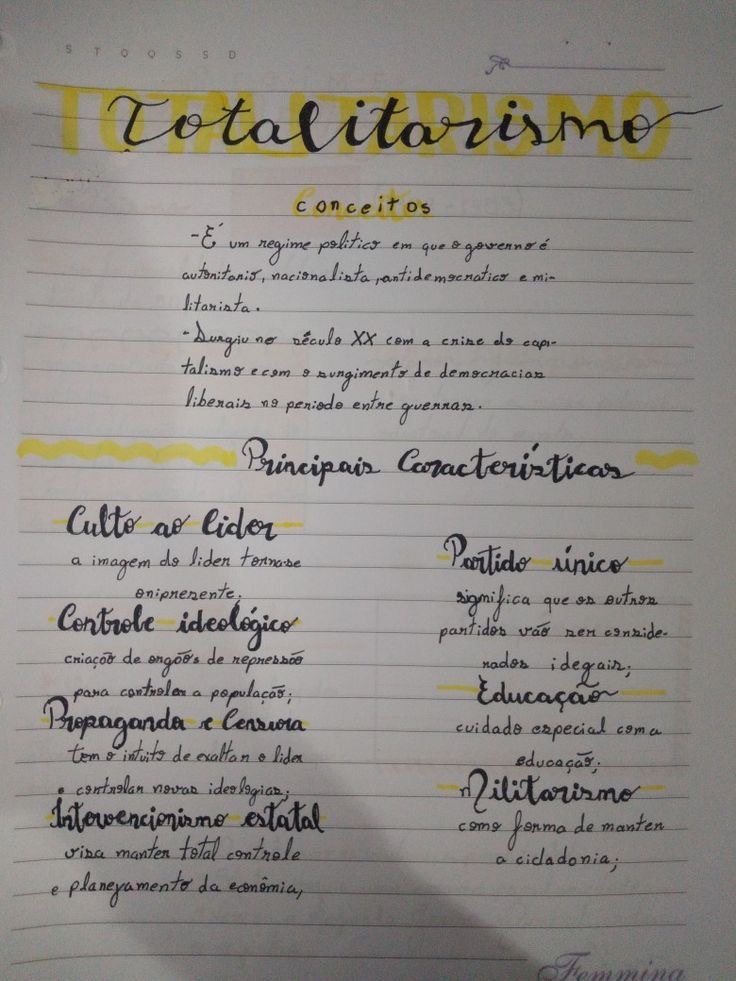 S T Q Q S S D
TOTALITARISMO
Totalitarismo
conceitos
-É um regime politico em que o governo é
autoritario, nacionalista, antidemocratico e mi-
litarista.
-Surgiu no século XX com a crise do capi-
talismo e com o surgimento de democracias
liberais no periodo entre guerras.
Principais Características
Culto ao lider
a imagem do lider torna-se
onipresente;
Controle ideológico
criação de orgãos de repressão
para controlar a população;
Propaganda e Censura
tem o intuito de exaltar o lider
e controlar novas ideologias;
Intervencionismo estatal
visa manter total controle
e planejamento da econômia,
Partido único
significa que os outros
partidos vão ser conside-
rados idegais;
Educação
cuidado especial com a
educação;
Militarismo
como forma de manter
a cicladonia;
Femmina